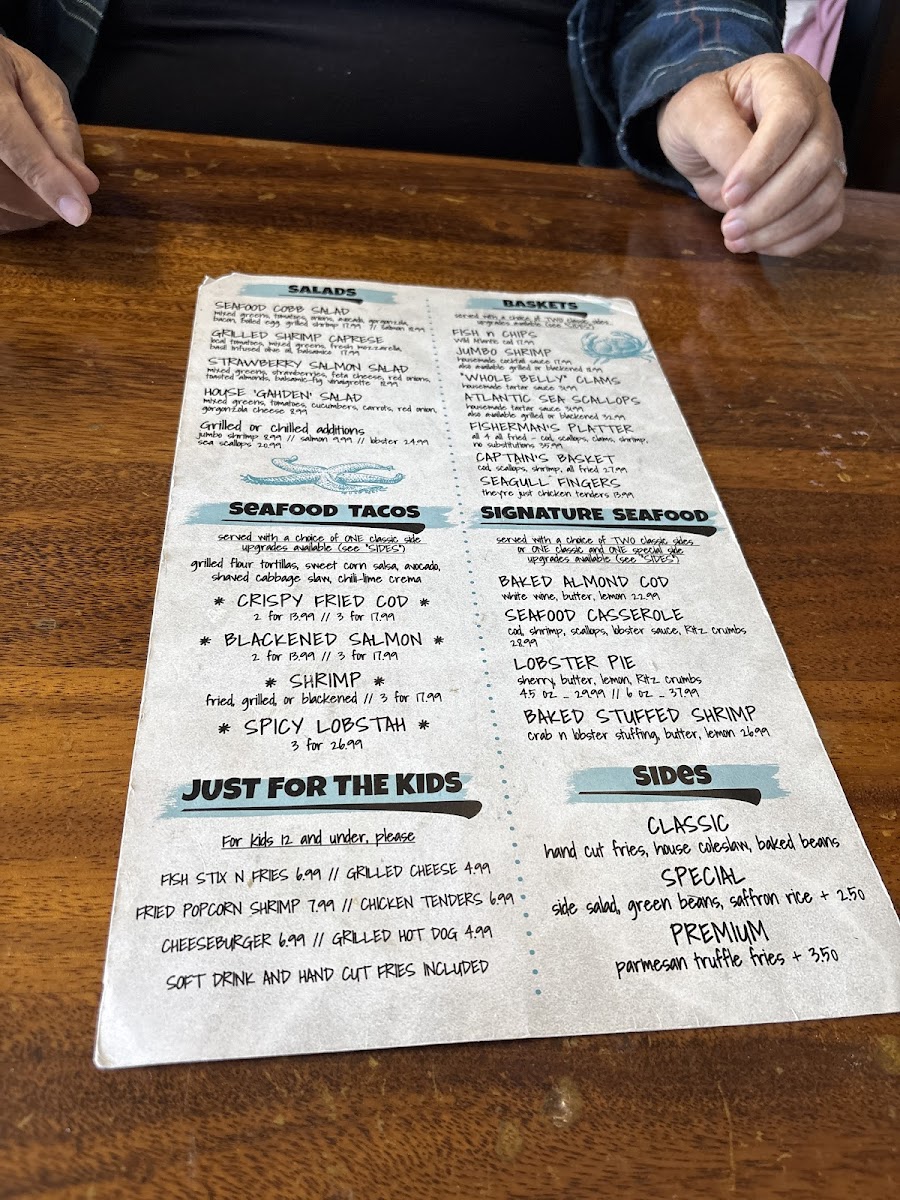 SALADS
SEAFOOD COBB SALAD
mixed greens, tomatoes, onions, avocado, gorgonzola,
bacon, boiled egg, grilled shrimp 17.99 // salmon 18.99
GRILLED SHRIMP CAPRESE
local tomatoes, mixed greens, fresh mozzarella,
basil infused olive oil, balsamico 17.99
STRAWBERRY SALMON SALAD
mixed greens, strawberries, feta cheese, red onions,
toasted almonds, balsamic-fig vinaigrette 18.99
HOUSE 'GAHDEN' SALAD
mixed greens, tomatoes, cucumbers, carrots, red onion,
gorgonzola cheese 8.99
Grilled or chilled additions
jumbo shrimp 8.99 // salmon 9.99 // lobster 24.99
sea scallops 20.99
SEAFOOD TACOS
served with a choice of ONE classic side
upgrades available (see "SIDES")
grilled flour tortillas, sweet corn salsa, avocado,
shaved cabbage slaw, chili-lime crema
* CRISPY FRIED COD *
2 for 13.99 // 3 for 17.99
* BLACKENED SALMON *
2 for 13.99 // 3 for 17.99
* SHRIMP *
fried, grilled, or blackened // 3 for 17.99
* SPICY LOBSTAH *
3 for 26.99
JUST FOR THE KIDS
For kids 12 and under, please
FISH STIX N FRIES 6.99 // GRILLED CHEESE 4.99
FRIED POPCORN SHRIMP 7.99 // CHICKEN TENDERS 6.99
CHEESEBURGER 6.99 // GRILLED HOT DOG 4.99
SOFT DRINK AND HAND CUT FRIES INCLUDED
BASKETS
served with a choice of TWO classic sides
upgrades available (see "SIDES")
FISH n CHIPS
wild Atlantic cod 17.99
JUMBO SHRIMP
housemade cocktail sauce 17.99
also available grilled or blackened 18.99
"WHOLE BELLY" CLAMS
housemade tartar sauce 31.99
ATLANTIC SEA SCALLOPS
housemade tartar sauce 31.99
also available grilled or blackened 32.99
FISHERMAN'S PLATTER
all 4 all fried - cod, scallops, clams, shrimp,
no substitutions 35.99
CAPTAIN'S BASKET
cod, scallops, shrimp, all fried 27.99
SEAGULL FINGERS
they're just chicken tenders 13.99
SIGNATURE SEAFOOD
served with a choice of TWO classic sides
or ONE classic and ONE special side
upgrades available (see "SIDES")
BAKED ALMOND COD
white wine, butter, lemon 22.99
SEAFOOD CASSEROLE
cod, shrimp, scallops, lobster sauce, Ritz crumbs
28.99
LOBSTER PIE
sherry, butter, lemon, Ritz crumbs
4.5 oz - 29.99 // 6 oz - 37.99
BAKED STUFFED SHRIMP
crab n lobster stuffing, butter, lemon 26.99
SIDES
CLASSIC
hand cut fries, house coleslaw, baked beans
SPECIAL
side salad, green beans, saffron rice + 2.50
PREMIUM
parmesan truffle fries + 3.50